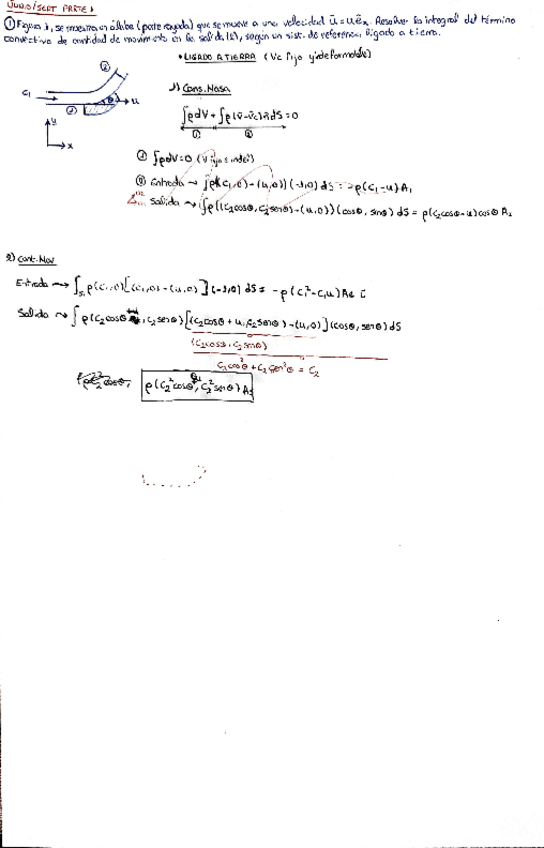 JUNIO/SEPT PARTE 1
① Figura 1, se muestra un álabe (parte rayada) que se mueve a una velocidad ū = u ēx. Resolver la integral del término
convectivo de cantidad de movimiento en la salida (2), según un sist. de referencia ligado a tierra.
• LIGADO A TIERRA (Vc fijo y indeformable)
1) Cons. Masa
② C₁ ① θ u
y x
∫ρdV + ∫ρ(v̄-v̄c)·n̄dS = 0
① ②
① ∫ρdV=0
② Entrada → ∫ρ((c₁,0)-(u,0))(-1,0)dS = -ρ(c₁-u)A₁
Salida → ∫ρ((c₂cosθ, c₂senθ)-(u,0))(cosθ, senθ)dS = ρ(c₂cosθ-u)cosθ A₂
2) Cant. Mov
Entrada → ∫s₁ ρ(c₁,0)[(c₁,0)-(u,0)](-1,0)dS = -ρ(c₁²-c₁u)
Salida → ∫ρ(c₂cosθ, c₂senθ)[(c₂cosθ+u, c₂senθ)-(u,0)](cosθ, senθ)dS
(c₂cosθ, c₂senθ)
c₂cos²θ + c₂sen²θ = c₂
ρ(c₂²cosθ, c₂²senθ)